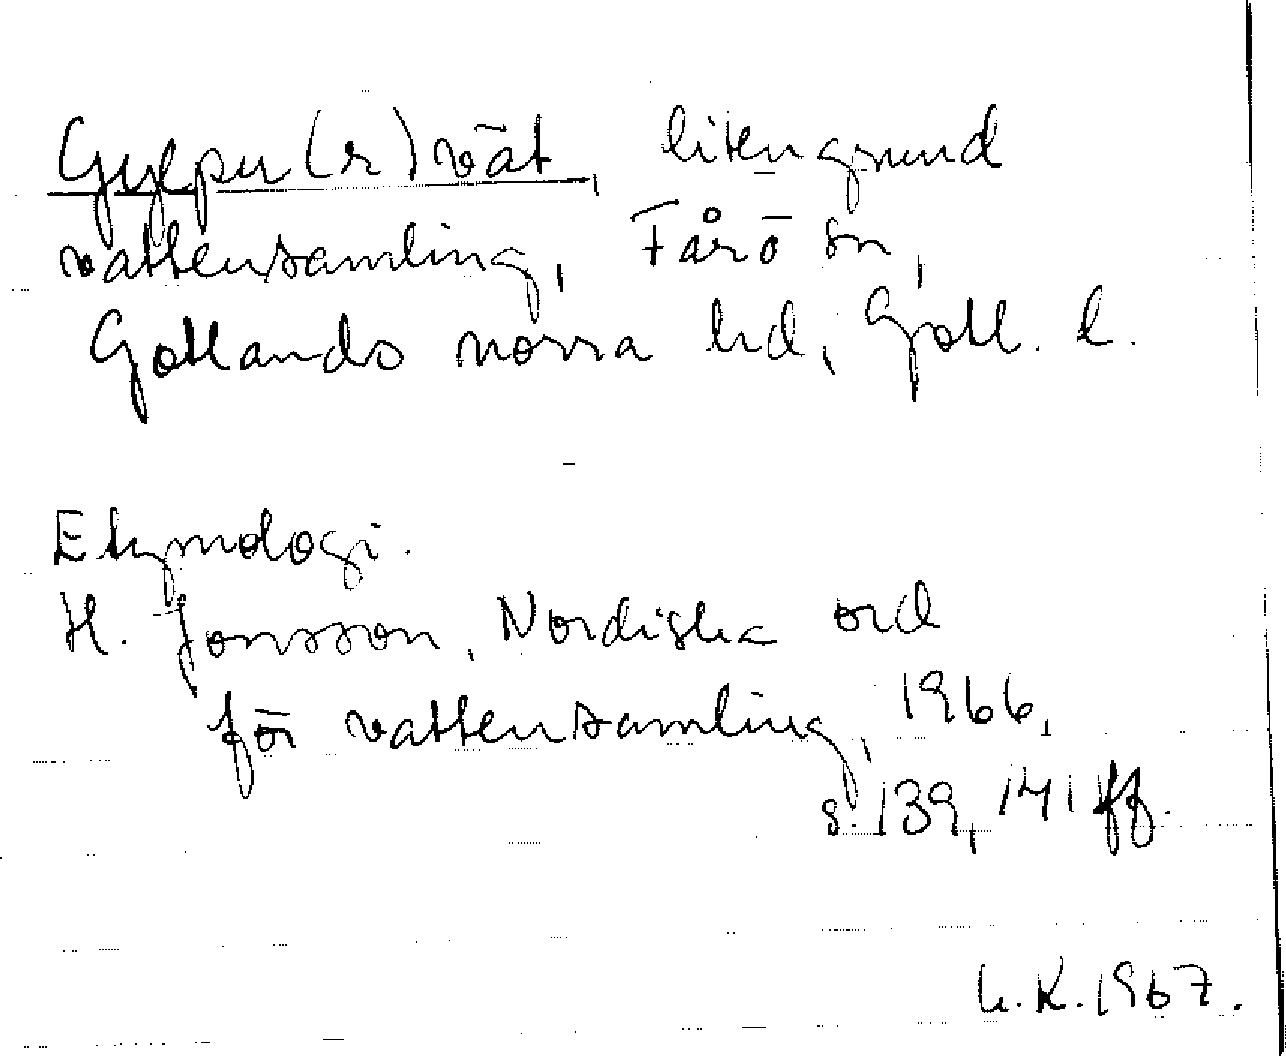 Gylpu(r)vät, liten grund
vattensamling, Fårö sn,
Gotlands norra hd, Gotl. l.
Etymologi.
H. Jonsson, Nordiska ord
för vattensamling, 1966,
s. 139, 141 ff.
L. K. 1967.